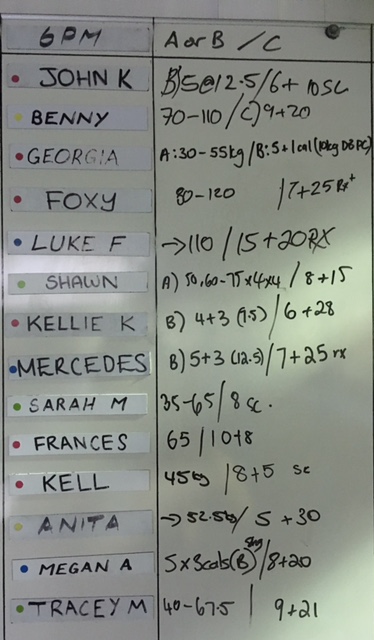 6PM A or B / C
JOHN K B) 5@12.5/6+ 10 SC
BENNY 70-110 / C) 9+20
GEORGIA A: 30-55kg / B: 5+1 cal (10kg DB PC)
FOXY 80-120 / 7+25 Rx+
LUKE F →110 / 15+20 RX
SHAWN A) 50,60-75x4x4 / 8+15
KELLIE K B) 4+3 (7.5) / 6+28
MERCEDES B) 5+3 (12.5) / 7+25 rx
SARAH M 35-65 / 8 sc.
FRANCES 65 / 10+8
KELL 45kg / 8+5 sc
ANITA → 52.5kg / 5 +30
MEGAN A 5x3cals (B) 5kg / 8+20
TRACEY M 40-67.5 / 9+21